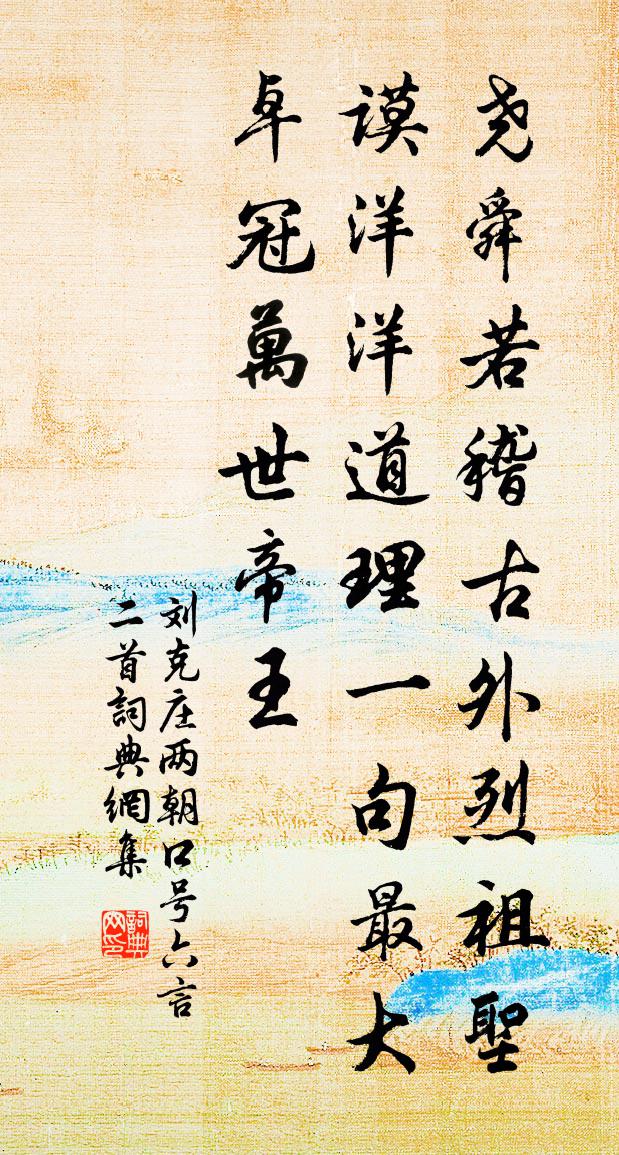 尧舜若稽古外烈祖聖
謨洋洋道理一句最大
卓冠萬世帝王
刘克庄两朝口号六言
二首詞典網集
詞典
网印